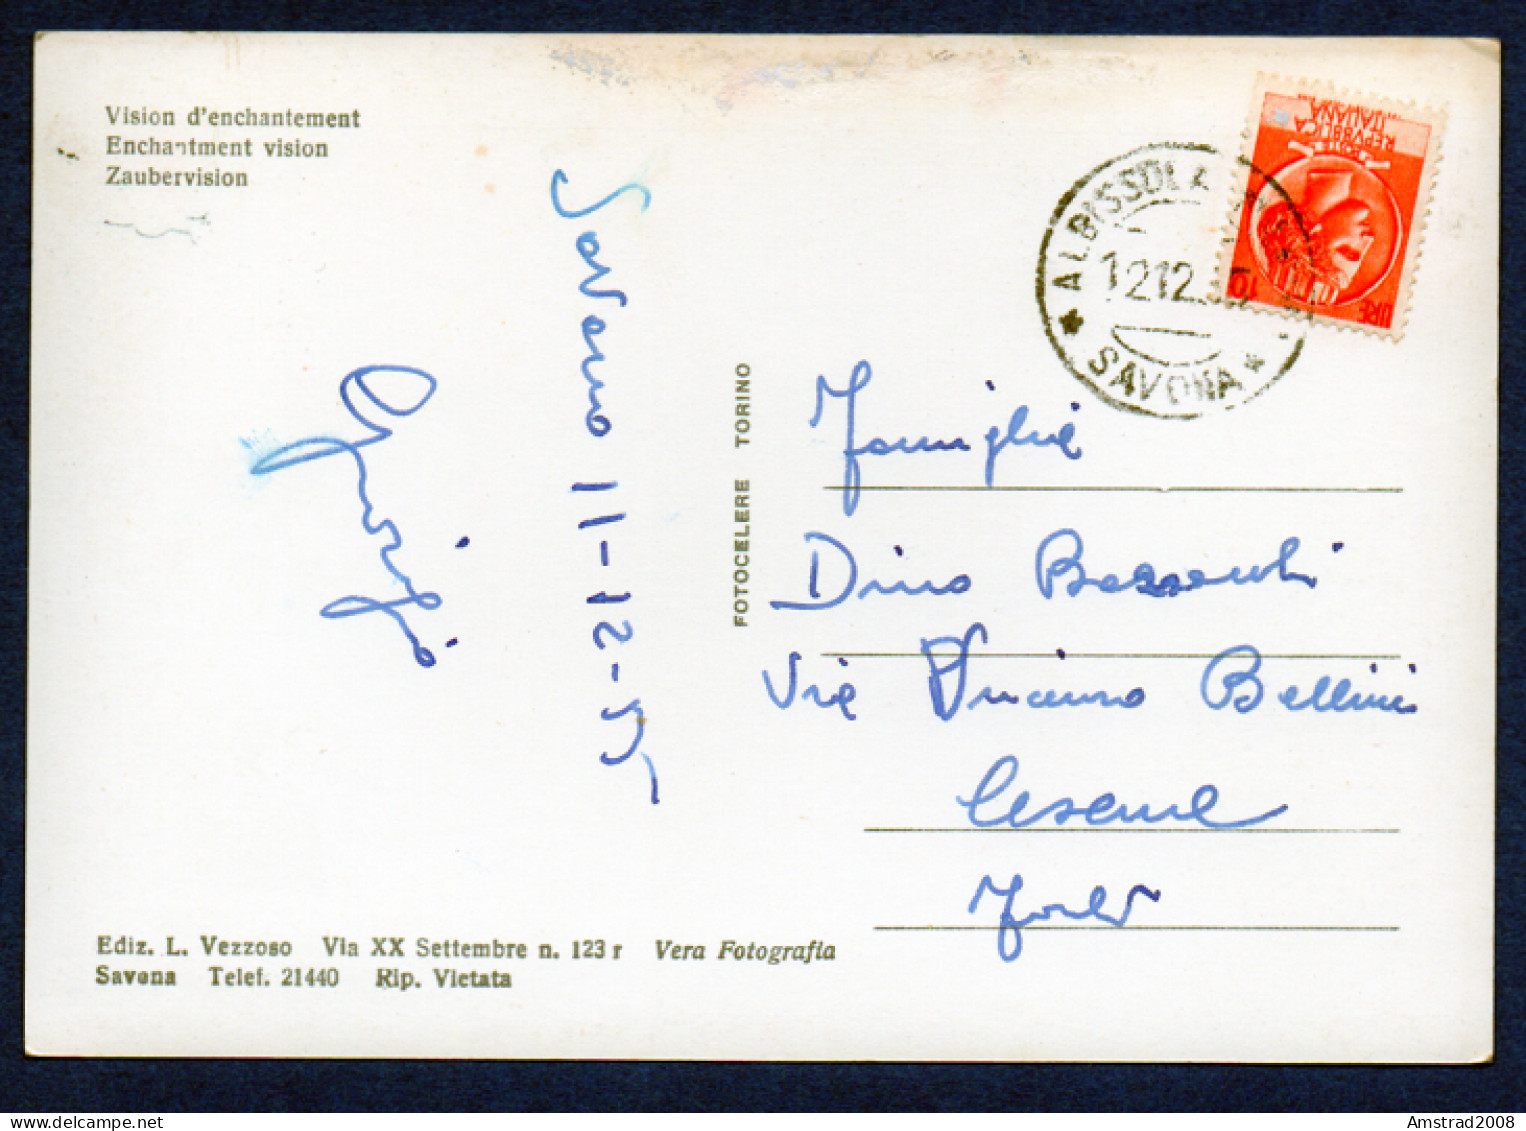 Vision d'enchantement
Enchantment vision
Zaubervision
Savona 11-12-55
Giorgio
FOTOCELERE TORINO
ALBISSOLA
12 12
SAVONA
REPVBBLICA
ITALIANA
POSTE
LIRE 10
Famiglia
Dino
Via Vincenzo Bellini
Cesena
Forlì
Ediz. L. Vezzoso Via XX Settembre n. 123 r Vera Fotografia
Savona Telef. 21440 Rip. Vietata
Amstrad2008